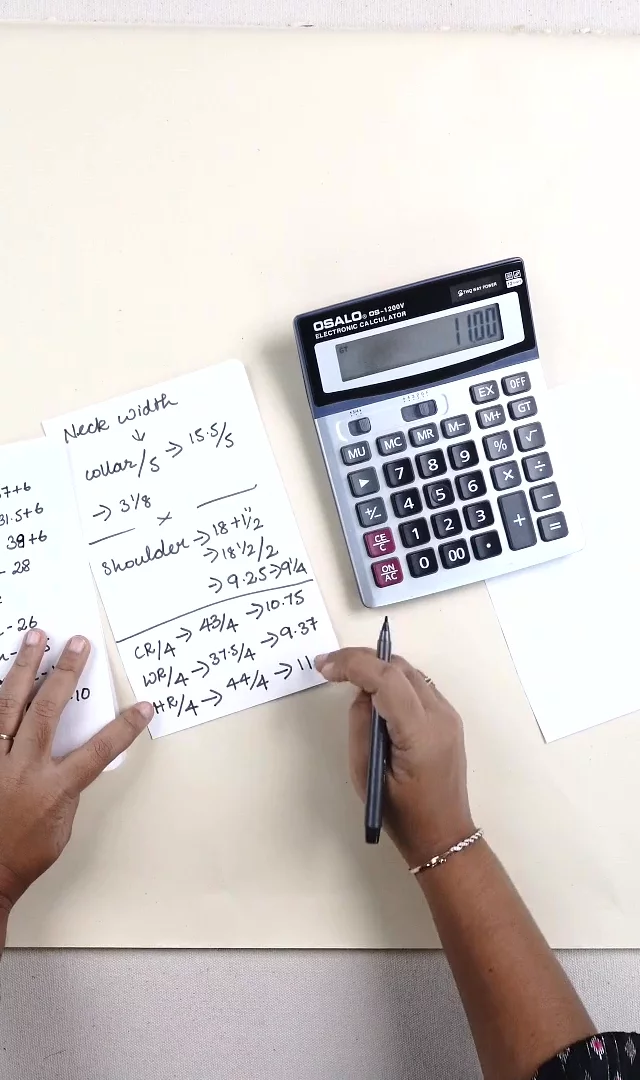 Neck width
↓
collar/5 → 15.5/5
→ 3 1/8
×
Shoulder → 18 + 1/2"
→ 18 1/2 /2
→ 9.25 → 9 1/4
CR/4 → 43/4 → 10.75
WR/4 → 37.5/4 → 9.37
HR/4 → 44/4 → 11
37+6
31.5+6
38+6
- 28
- 26
- 10
OSALO® OS-1200V
ELECTRONIC CALCULATOR
TWO WAY POWER
GT
1100
EX OFF
MU MC MR M− M+ GT
▶ 7 8 9 % √
+/− 4 5 6 × ÷
CE/C 1 2 3 + −
ON/AC 0 00 • =